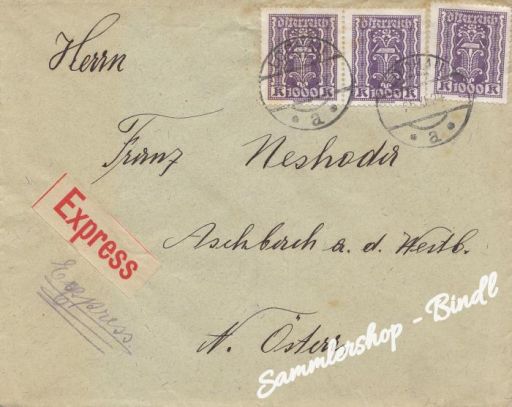 Herrn
Österreich Österreich Österreich
K 1000 K K 1000 K K 1000 K
a a
Franz Neshoder
Aschbach a. d. Westb.
N. Österr.
Express
Express
Sammlershop - Bindl